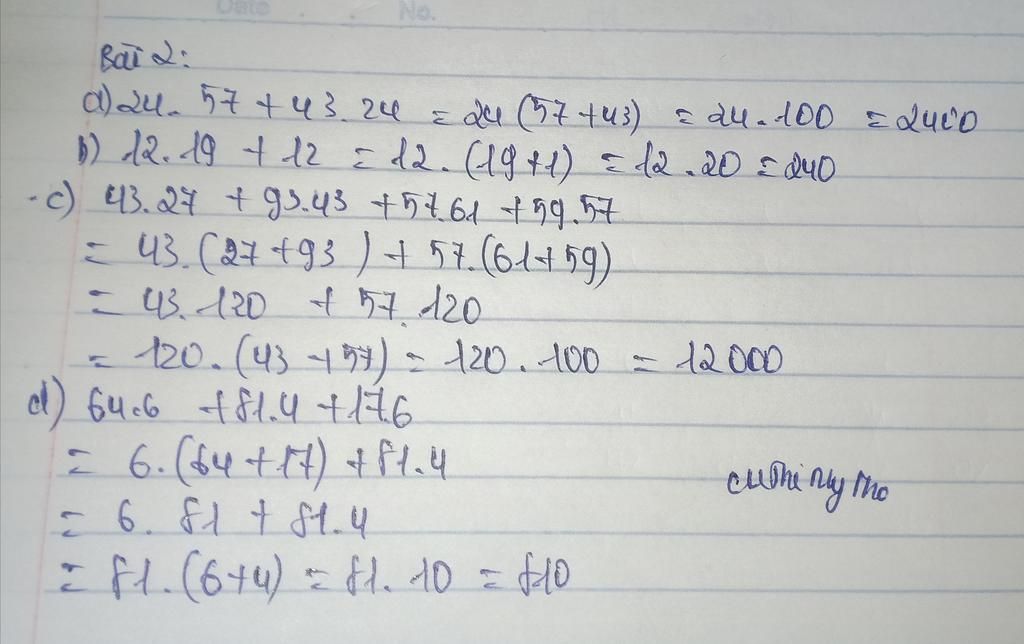 Date . . No.
Bài 2:
a) 24. 57 + 43. 24 = 24 (57 + 43) = 24. 100 = 2400
b) 12. 19 + 12 = 12. (19 + 1) = 12. 20 = 240
c) 43.27 + 93.43 + 57.61 + 59.57
= 43. (27 + 93) + 57. (61 + 59)
= 43. 120 + 57. 120
= 120. (43 + 57) = 120. 100 = 12000
d) 64.6 + 81.4 + 17.6
= 6. (64 + 17) + 81.4
= 6. 81 + 81.4
= 81. (6 + 4) = 81. 10 = 810